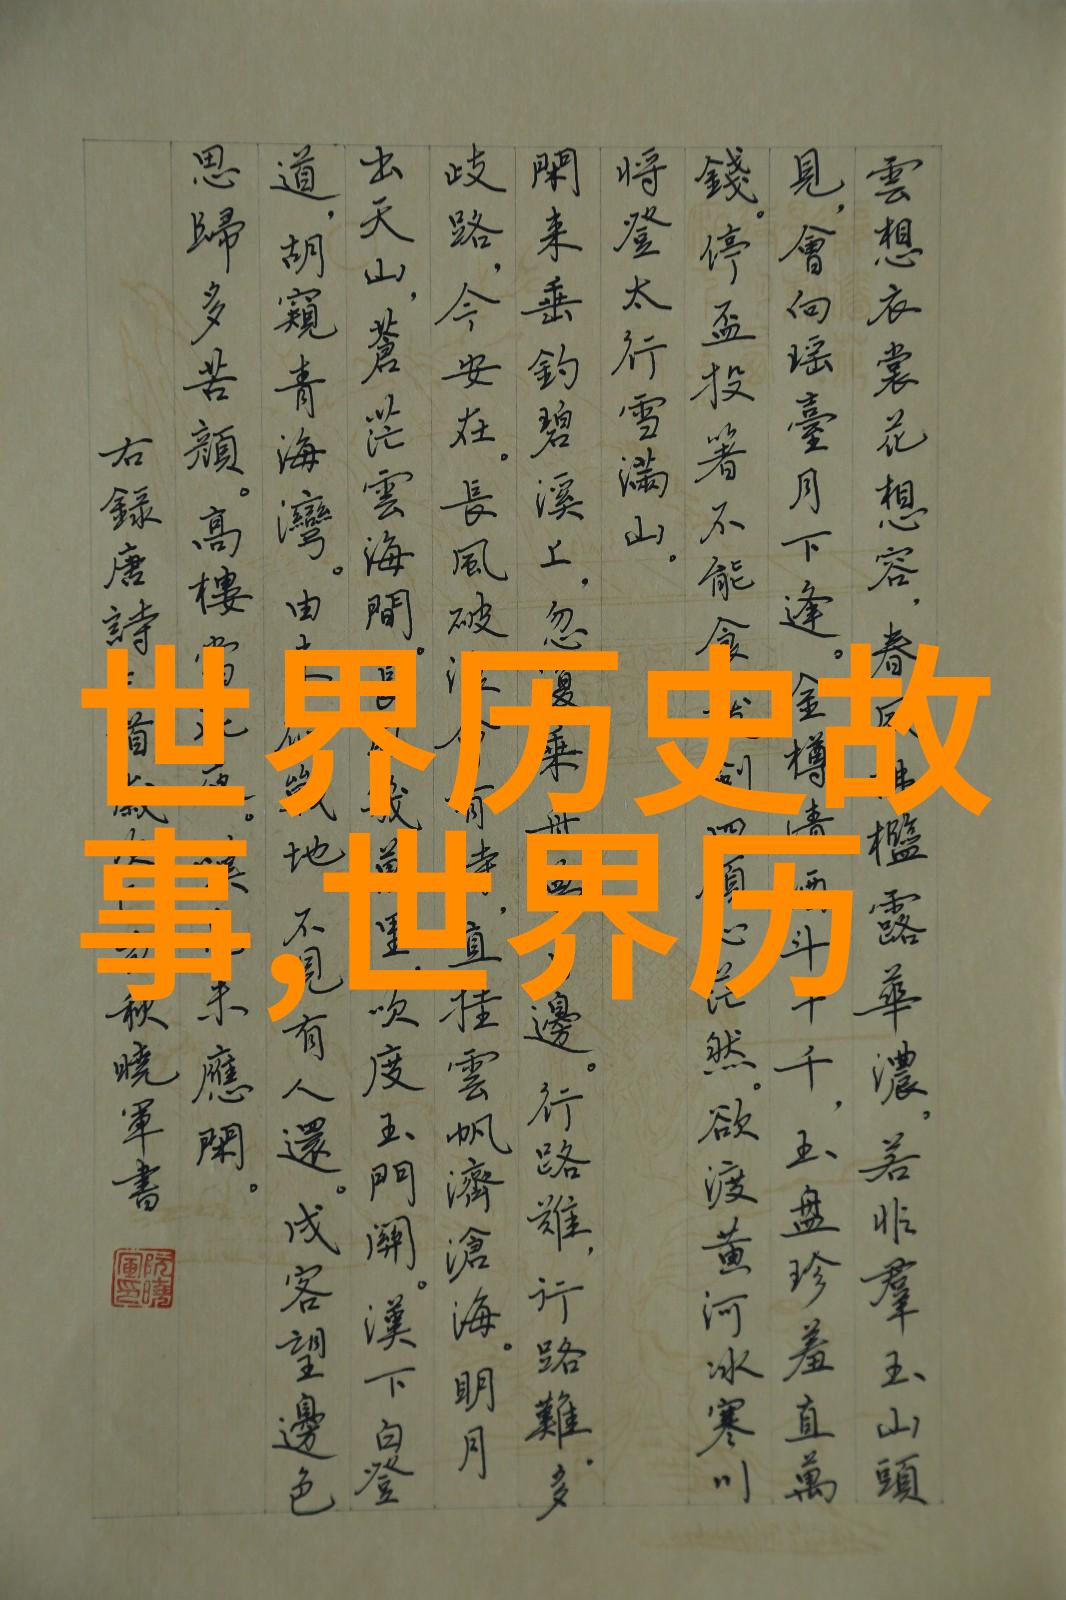 雲想衣裳花想容，春風拂檻露華濃。若非羣玉山頭
見，會向瑶臺月下逢。金樽清酒斗十千，玉盤珍羞直萬
錢。停盃投箸不能食劍四顧心茫然。欲渡黄河冰寒川
将登太行雪滿山。
閑来垂釣碧溪上，忽復乘邊。行路難，行路難。多
歧路，今安在。長風破浪有時，直挂雲帆濟滄海。明月
出天山，蒼茫雲海間。長幾萬里，吹度玉門關。漢下白登
道，胡窺青海灣。由地不見有人還。戍客望邊色
思歸多苦顔。高樓當此未應閑。
右録唐詩首歲次秋曉軍書
阮曉軍印
世界历史故
事,世界历